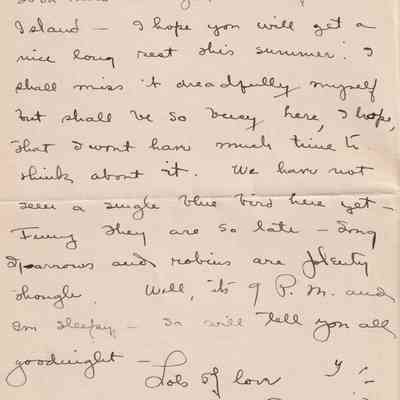 Island — I hope you will get a
nice long rest this summer. I
shall miss it dreadfully myself
but shall be so busy here, I hope,
that I wont have much time to
think about it. We have not
seen a single blue bird here yet —
Funny they are so late — Song
Sparrows and robins are plenty
though. Well, its 9 P.M. and
Im sleepy — so will tell you all
goodnight —
Lots of love